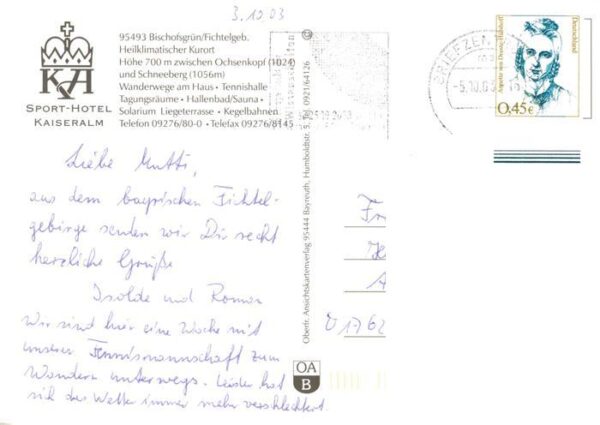 3.10.03
KA
SPORT-HOTEL
KAISERALM
95493 Bischofsgrün/Fichtelgeb.
Heilklimatischer Kurort
Höhe 700 m zwischen Ochsenkopf (1024)
und Schneeberg (1056m)
Wanderwege am Haus • Tennishalle
Tagungsräume • Hallenbad/Sauna •
Solarium Liegeterrasse • Kegelbahnen
Telefon 09276/80-0 • Telefax 09276/8145
Liebe Mutti,
aus dem bayrischen Fichtel-
gebirge senden wir Dir recht
herzliche Grüße
Isolde und Roman
Wir sind hier eine Woche mit
unserer Tennismannschaft zum
Wandern unterwegs. Leider hat
sich das Wetter immer mehr verschlechtert.
Oberfr. Ansichtskartenverlag 95444 Bayreuth, Humboldtstr. 5, Tel. 0921/64126 ©
OA
B
BRIEFZEN
-5.10.03
Annette von Droste-Hülshoff
Deutschland
0,45€
Fr
A
01762